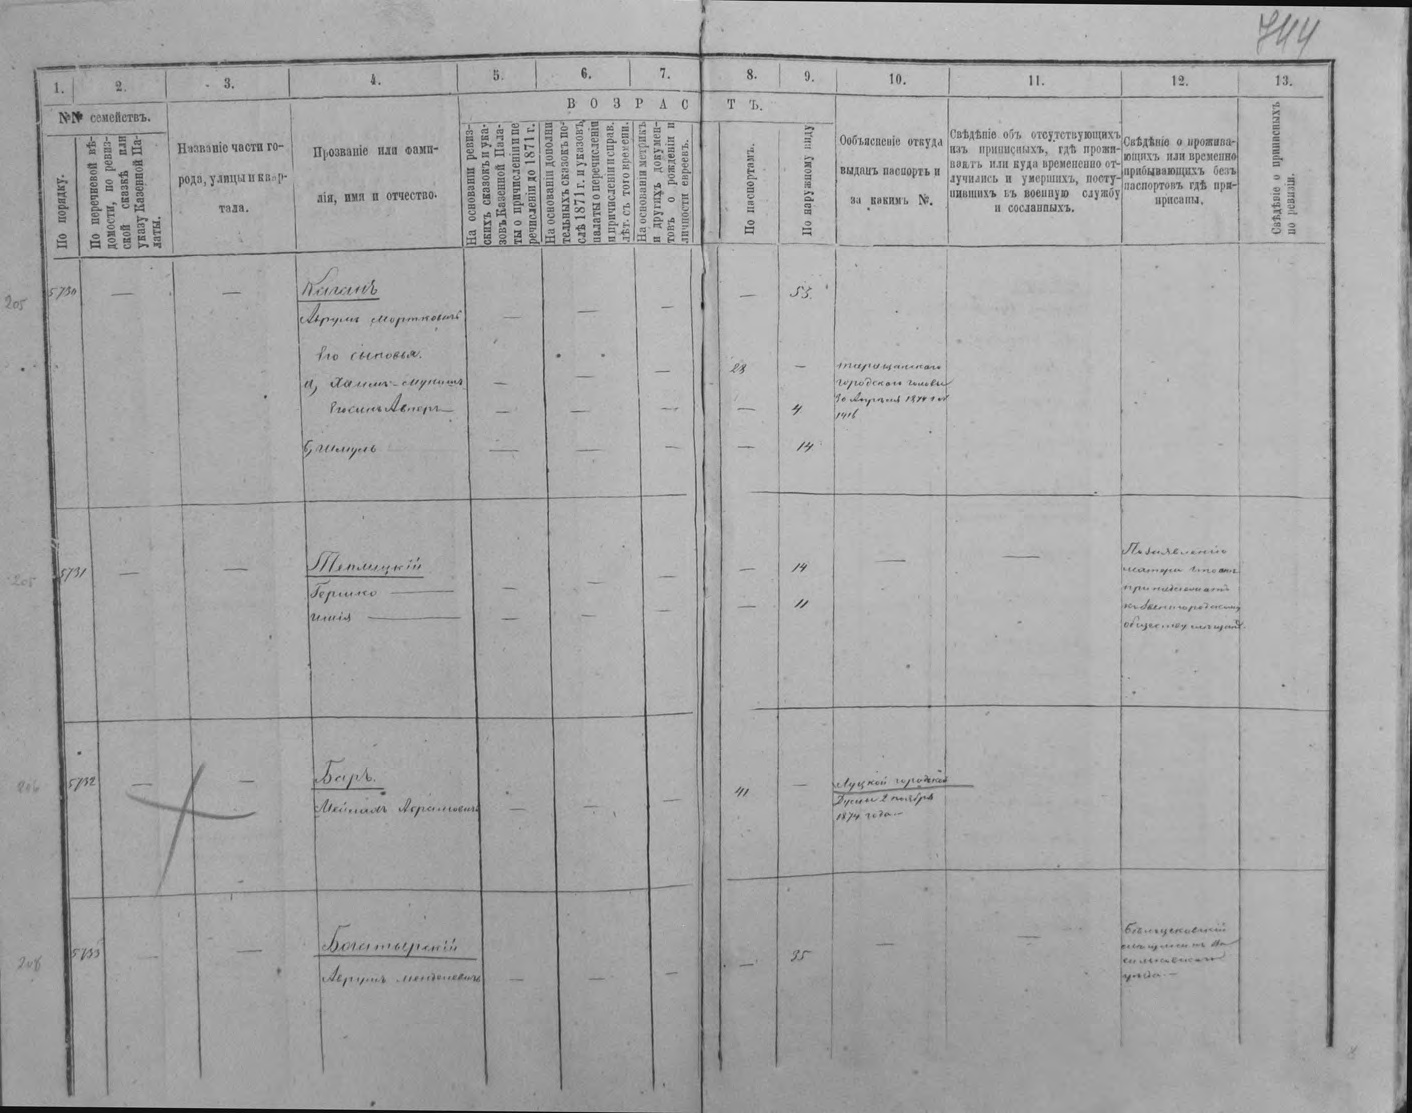 744
1.
2.
3.
4.
5.
6.
7.
8.
9.
10.
11.
12.
13.
№№ семействъ.
По порядку.
По перечневой вѣ-
домости, по ревиз-
ской сказкѣ или
указу Казенной Па-
латы.
Названіе части го-
рода, улицы и квар-
тала.
Прозваніе или фами-
лія, имя и отчество.
ВОЗРАСТЪ.
На основаніи ревиз-
скихъ сказокъ и ука-
зовъ Казенной Пала-
ты о причисленіи и пе
речисленіи до 1871 г.
На основаніи дополни
тельныхъ сказокъ по-
слѣ 1871 г. и указовъ
палаты о перечисленіи
и причисленіи и справ.
лѣт. съ того времени.
На основаніи метрикъ
и другихъ докумен-
товъ о рожденіи и
личности евреевъ.
По паспортамъ.
По наружному виду
Объясненіе откуда
выданъ паспортъ и
за какимъ №.
Свѣдѣніе объ отсутствующихъ
изъ приписныхъ, гдѣ прожи-
ваютъ или куда временно от-
лучились и умершихъ, посту-
пившихъ въ военную службу
и сосланныхъ.
Свѣдѣніе о прожива-
ющихъ или временно
прибывающихъ безъ
паспортовъ гдѣ при-
писаны.
Свѣдѣніе о приписныхъ
по ревизіи.
205
5730
Каганъ
53.
Аврумъ Мортковичъ
Его сыновья.
а, Хаимъ
28
Таращанского
городского Головы
30 Апрѣля 1874 г. №
1416
4
б, Шмуль
14
205
5731
Теплицкій
Гершко
14
11
По заявленію
матери
обществу мѣщанъ.
206
5732
Баръ.
Абрамовичъ
41
Луцкой городской
Думы 2 ноября
1874 года
208
5733
Богатырскій
Аврумъ Менделевичъ
35
мѣщанинъ Ва
сильковскаго
уѣзда